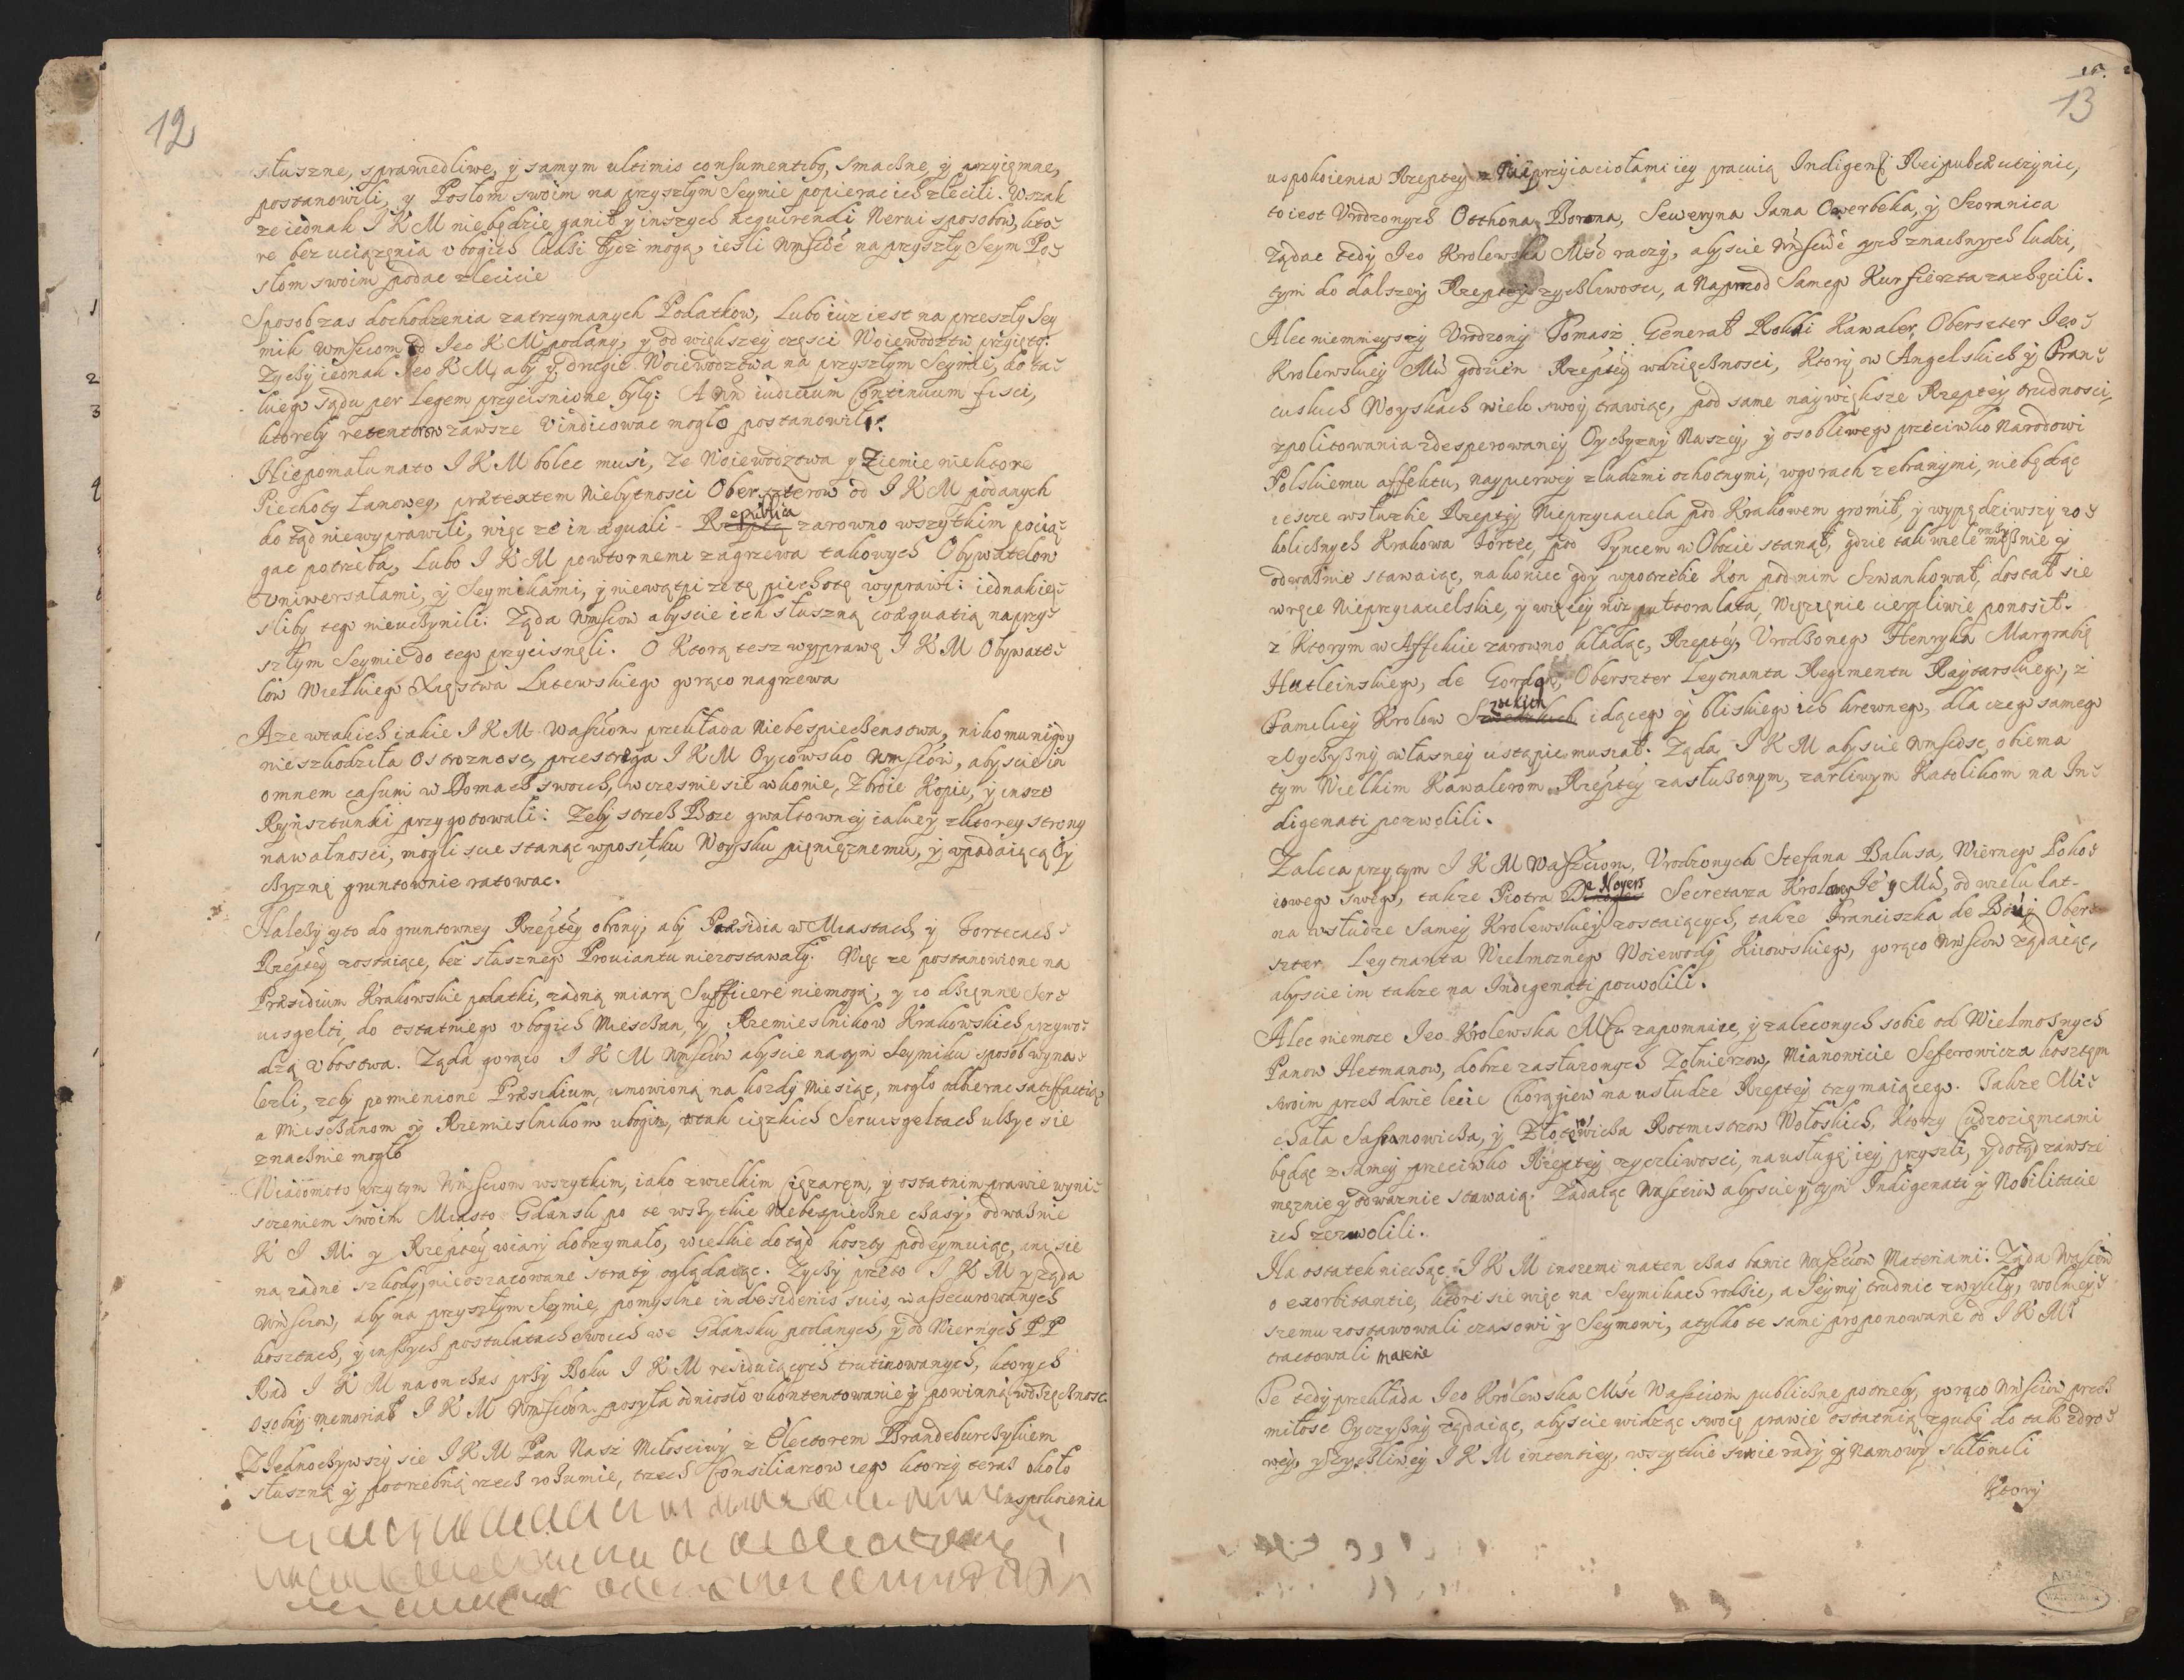 12
słuszne, sprawiedliwe, y samym ultimis consumentibꝫ, smaczne, y przyięmne,
postanowili, y Posłom swoim na przyszłym Seymie popierac ich zlecili. Wszak
ze iednak I K M niebędzie ganił y inszych acquirendi Nerui sposobow, kto=
re bez uciązęnia vbogich ludzi bydz mogą, iesli Wmscie na przyszły Seym Po=
słom swoim podac zlecicie
Sposob zas dochodzenia zatrzymanych Podatkow, Lubo iuz iest na przeszły Sey
mik Wmsciom od Ieo K M podany, y od większey częsci Woiewodztw przyięty:
Zyczy iednak Ieo K M, aby y drugie Woiewodztwa na przyszłym Seymie, do ta=
kiego sądu per Legem przycisnione były: A iudicium Continuum fisci,
ktoreby retentorow zawsze vindicowac mogło postanowili.
Niepomału na to I K M bolec musi, ze Woiewodztwa y Ziemie niektore
Piechoty Łanowey, prætextem niebytnosci Oberszterow od I K M podanych
do tąd niewyprawili, więc ze in æquali - Republica zarowno wszytkim pocią=
gac potrzeba, Lubo I K M powtornemi zagrzewa takowych Obywatelow
Vniwersałami, y Seymikami, y niewątpi ze tę piechotę wyprawi: iednakię=
sliby tego nieuczynili. Ząda Wmsciow abyscie ich słuszną coæquatią na przy=
szłym Seymie do tego przycisnęli. O Ktorą tesz wyprawę I K M Obywate=
low Wielkiego Xięstwa Litewskiego gorąco nagrzewa
A ze wtakich iakie I K M Wasciom przekłada Niebespieczenstwa, nikomu nigdy
nieszkodziła Ostroznosc, przestrzega I K M Oycowsko Wmsciow, abyscie in
omnem casum w Domach swoich, wczesnie sie w konie, Zbroie Kopie, y insze
Rynsztunki przygotowali: Zeby strzesz Boze gwałtowney iakiey zktorey strony
nawałnosci, mogli scie stanąc w posiłku Woysku pięnięznemu, y vpadaiącą Oy
czyznę gruntownie ratowac.
Nalezy y to do gruntowney Rzeptey obrony, aby Præsidia w Miastach, y Fortecach=
Rzeptey zostaiące, bez słusznego Prouiantu niezostawały. Więc ze postanowione na
Præsidium Krakowskie podatki, zadną miarą Sufficere niemogą, y co dzięnne Ser=
uisgelti, do ostatniego vbogich Mieszczan, y Rzemieslnikow Krakowskich przywo=
dzą vbostwa. Ząda gorąco I K M Wmsciow abyscie na tym Seymiku sposob wyna=
lezli, zeby pomienione Præsidium, umowioną na kozdy Miesiąc, mogło odbierac satisfactią,
a Mieszczanom y Rzemieslnikom ubogim, wtak ciężkich Seruisgeltach ulzyc sie
znacznie mogło
Wiadomoto przytym Wmsciom wszytkim, iako z wielkim Ciężaręm, y ostatnim prawie wyni=
szczeniem swoim Miasto Gdansk po te wszytkie Niebespieczne czasy, odwaznie
K I M. y Rzeptey wiary dotrzymało, wielkie dotąd koszty podeymuiąc, ani sie
na zadne szkody, nieoszacowane straty oglądaiąc. Zyczy przeto I K M y ząda
Wmsciow, aby na przyszłym Seymie, pomyslne in desideriis suis, wassecurowanych
kosztach, y inszych postulatach swoich we Gdansku podanych, y od Wiernych P P
Rad I K M na on czas przy Boku I K M residuiących trutinowanych, ktorych
osobny memoriał I K M Wmsciom posyła odniosło vkontentowanie y powinną wdzięcznosc.
Ziednoczywszy sie I K M Pan Nasz Miłosciwy z Electorem Brandeburczykiem
słuszną y potrzebną rzecz rozumie, trzech Consiliarzow iego ktorzy teraz około
uspokoienia
13
uspokoienia Rzeptey z Nieprzyiaciołami iey pracuią Indigenas Reipubcæ uczynic,
to iest Vrodzonych Otthona Borona, Seweryna Iana Owerbeka, y Szoranica
Ządac tedy Ieo Krolewska Mść raczy, abyscie Wmscie tych znacznych ludzi,
tym do dalszey Rzeptey zyczliwosci, a Naprzod Samego Kurfierszta zachęcili.
Alec niemnieyszy Vrodzony Tomasz Generał Rokki Kawaler, Oberszter Ieo=
Krolewskiey Mci godzien Rzeptey wdzięcznosci, Ktory w Angelskich y Fran=
cuskich Woyskach wiek swoy trawiąc, pod same naywiększe Rzeptey trudnosci,
zpolitowania zdesperowaney Oyczyzny Naszey, y osobliwego przeciwko Narodowi
Polskiemu affektu, naypierwey zludzmi ochotnymi, wgorach zebranymi, niebędąc
iescze wsłuzbie Rzeptey Nieprzyiaciela pod Krakowem gromił, y wypędziwszy zo=
kolicznych Krakowa Fortec, pod Tyncem w Obozie stanął, gdzie tak wiele mężnie y
odwaznie stawaiąc, nakoniec gdy wpotrzebie Kon pod nim Szwankował, dostał sie
wręce Nieprzyiacielskie, y więcey niz puttora lata, Więzięnie cierpliwie ponosił.
z Ktorym w Affekcie zarowno kładąc, Rzeptey, Vrodzonego Henryka Margrabię
Hutleinskiego, de Gordon, Oberszter Leytnanta Regimentu Raytarskiego, z
Familiey Krolow Szockich idącego y bliskiego ich krewnego, dla czego samego
z Oyczyzny własney ustąpic musiał. Ząda I K M abyscie Wmscie, obiema
tym Wielkim Kawalerom Rzeptey zasłuzonym, zarliwym Katolikom na In=
digenati pozwolili.
Zaleca przytym I K M Wasciom, Vrodzonych Stefana Balusa, Wiernego Poko=
iowego swego, takze Piotra De Noyers Secretarza Krolowey Ie y Mci, od wielu lat-
na wsłudze Samey Krolewskiey zostaiących, takze Franciszka de Buy Ober=
szter Leytnanta Wielmoznego Woiewody Kiiowskiego, gorąco Wmsciow ządaiąc,
abyscie im takze na Indigenati pozwolili.
Alec niemoze Ieo Krolewska Msc zapomniec, y zaleconych sobie od Wielmoznych
Panow Hetmanow, dobrze zasłuzonych Zołnierzow, Mianowicie Seferowicza kosztęm
swoim przez dwie lecie Chorągiew na usłudze Rzeptey trzymaiącego. Takze Mi=
chała Saffanowicza, y Złotowicza Rotmistrzow Wołoskich, Ktorzy Cudzoziemcami
będąc z samey przeciwko Rzeptey zyczliwosci, na usługę iey przyszli, y dotąd zawsze
męznie y odwaznie stawaią. Ządaiąc Wasciow abyscie y tym Indigenati y Nobilitacie
ich zezwolili.
Na ostatek niechąc I K M inszemi na ten czas bawic Wasciow Materiami. Ząda Wasciow
o exorbitantie, ktore sie więc na Seymikach rodzic, a Seymy trudnic zwykły, wolniey=
szemu zostawowali czasowi y Seymowi, a tylko te same proponowane od I K Mci
tractowali materie
Te tedy przekłada Ieo Krolewska Msc Wasciom publiczne potrzeby, gorąco Wmsciow przez
miłosc Oyczyzny ządaiąc, abyscie widząc swoię prawie ostatnią zgubę do tak zdro=
wey, y zyczliwey I K M intentiey, wszytkie swoie rady y Namowy skłonili
Ktory